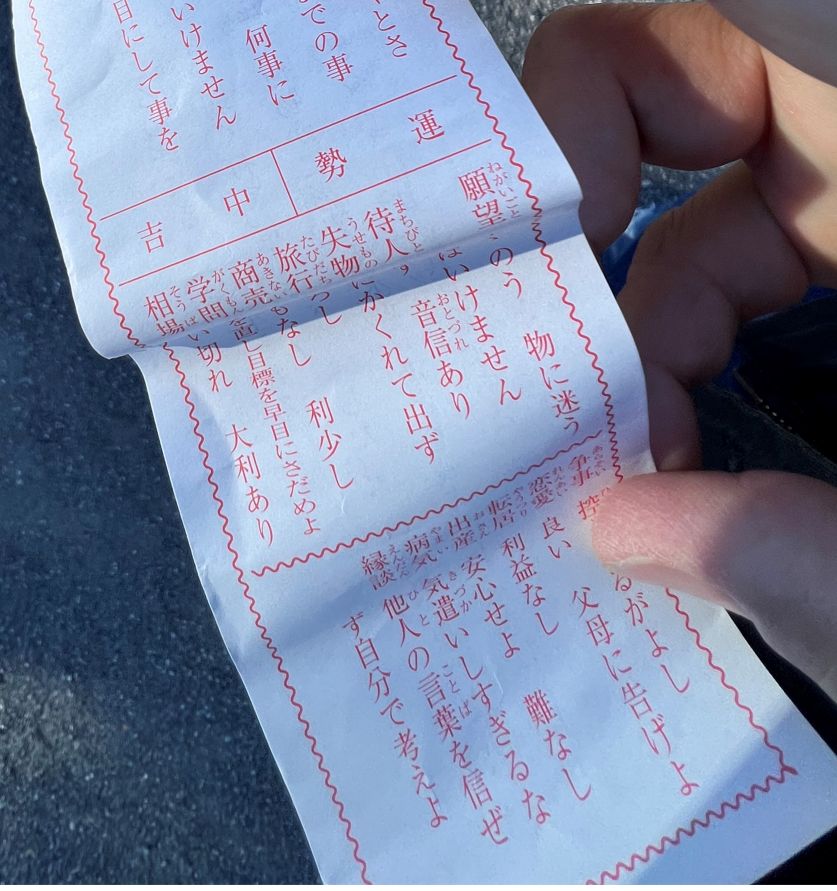 とさ
での事
何事に
いけません
目にして事を
運勢
中吉
ねがいごと
願望 のう 物に迷う
はいけません
まちびと おとづれ
待人 音信あり
うせもの
失物 にかくれて出ず
たびだち
旅行 ろし
あきない
商売 もなし 利少し
がくもん
学問 を直し目標を早目にさだめよ
そうば
相場 い切れ 大利あり
あらそい
争事 控 るがよし
れんあい
恋愛 良い 父母に告げよ
やうつり
転居 利益なし
おさん
出産 安心せよ 難なし
やまい きづか
病気 気遣いしすぎるな
えんだん ひと ことば
縁談 他人の言葉を信ぜ
ず自分で考えよ